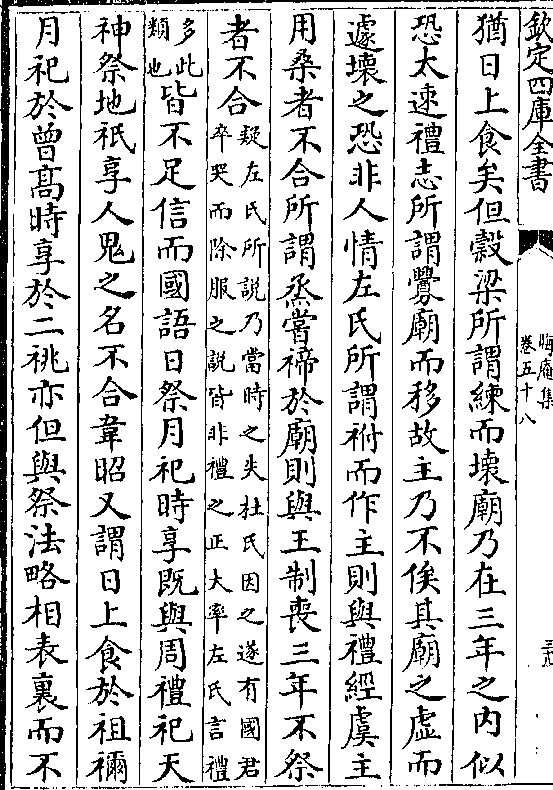 欽定四庫全書
晦庵集
卷五十八
猶日上食矣但穀梁所謂練而壞廟乃在三年之内似
恐太速禮志所謂釁廟而移故主乃不俟其廟之虚而
遽壞之恐非人情左氏所謂祔而作主則與禮經虞主
用桑者不合所謂烝嘗禘於廟則與王制喪三年不祭
者不合疑左氏所說乃當時之失杜氏因之遂有國君
卒哭而除服之說皆非禮之正大率左氏言禮
多此
類也皆不足信而國語日祭月祀時享既與周禮祀天
神祭地祇享人鬼之名不合韋昭又謂日上食於祖禰
月祀於曾髙時享於二祧亦但與祭法略相表裏而不